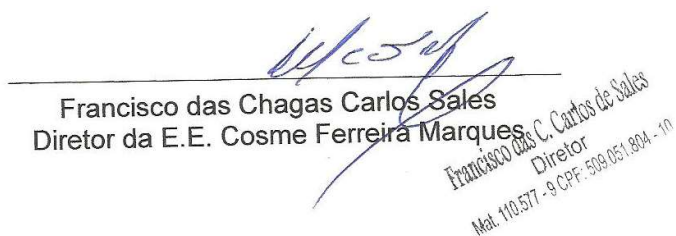 Francisco das Chagas Carlos Sales
Diretor da E.E. Cosme Ferreira Marques
Francisco das C. Carlos de Sales
Diretor
Mat. 110.577 - 9 CPF: 509.051.804 - 10